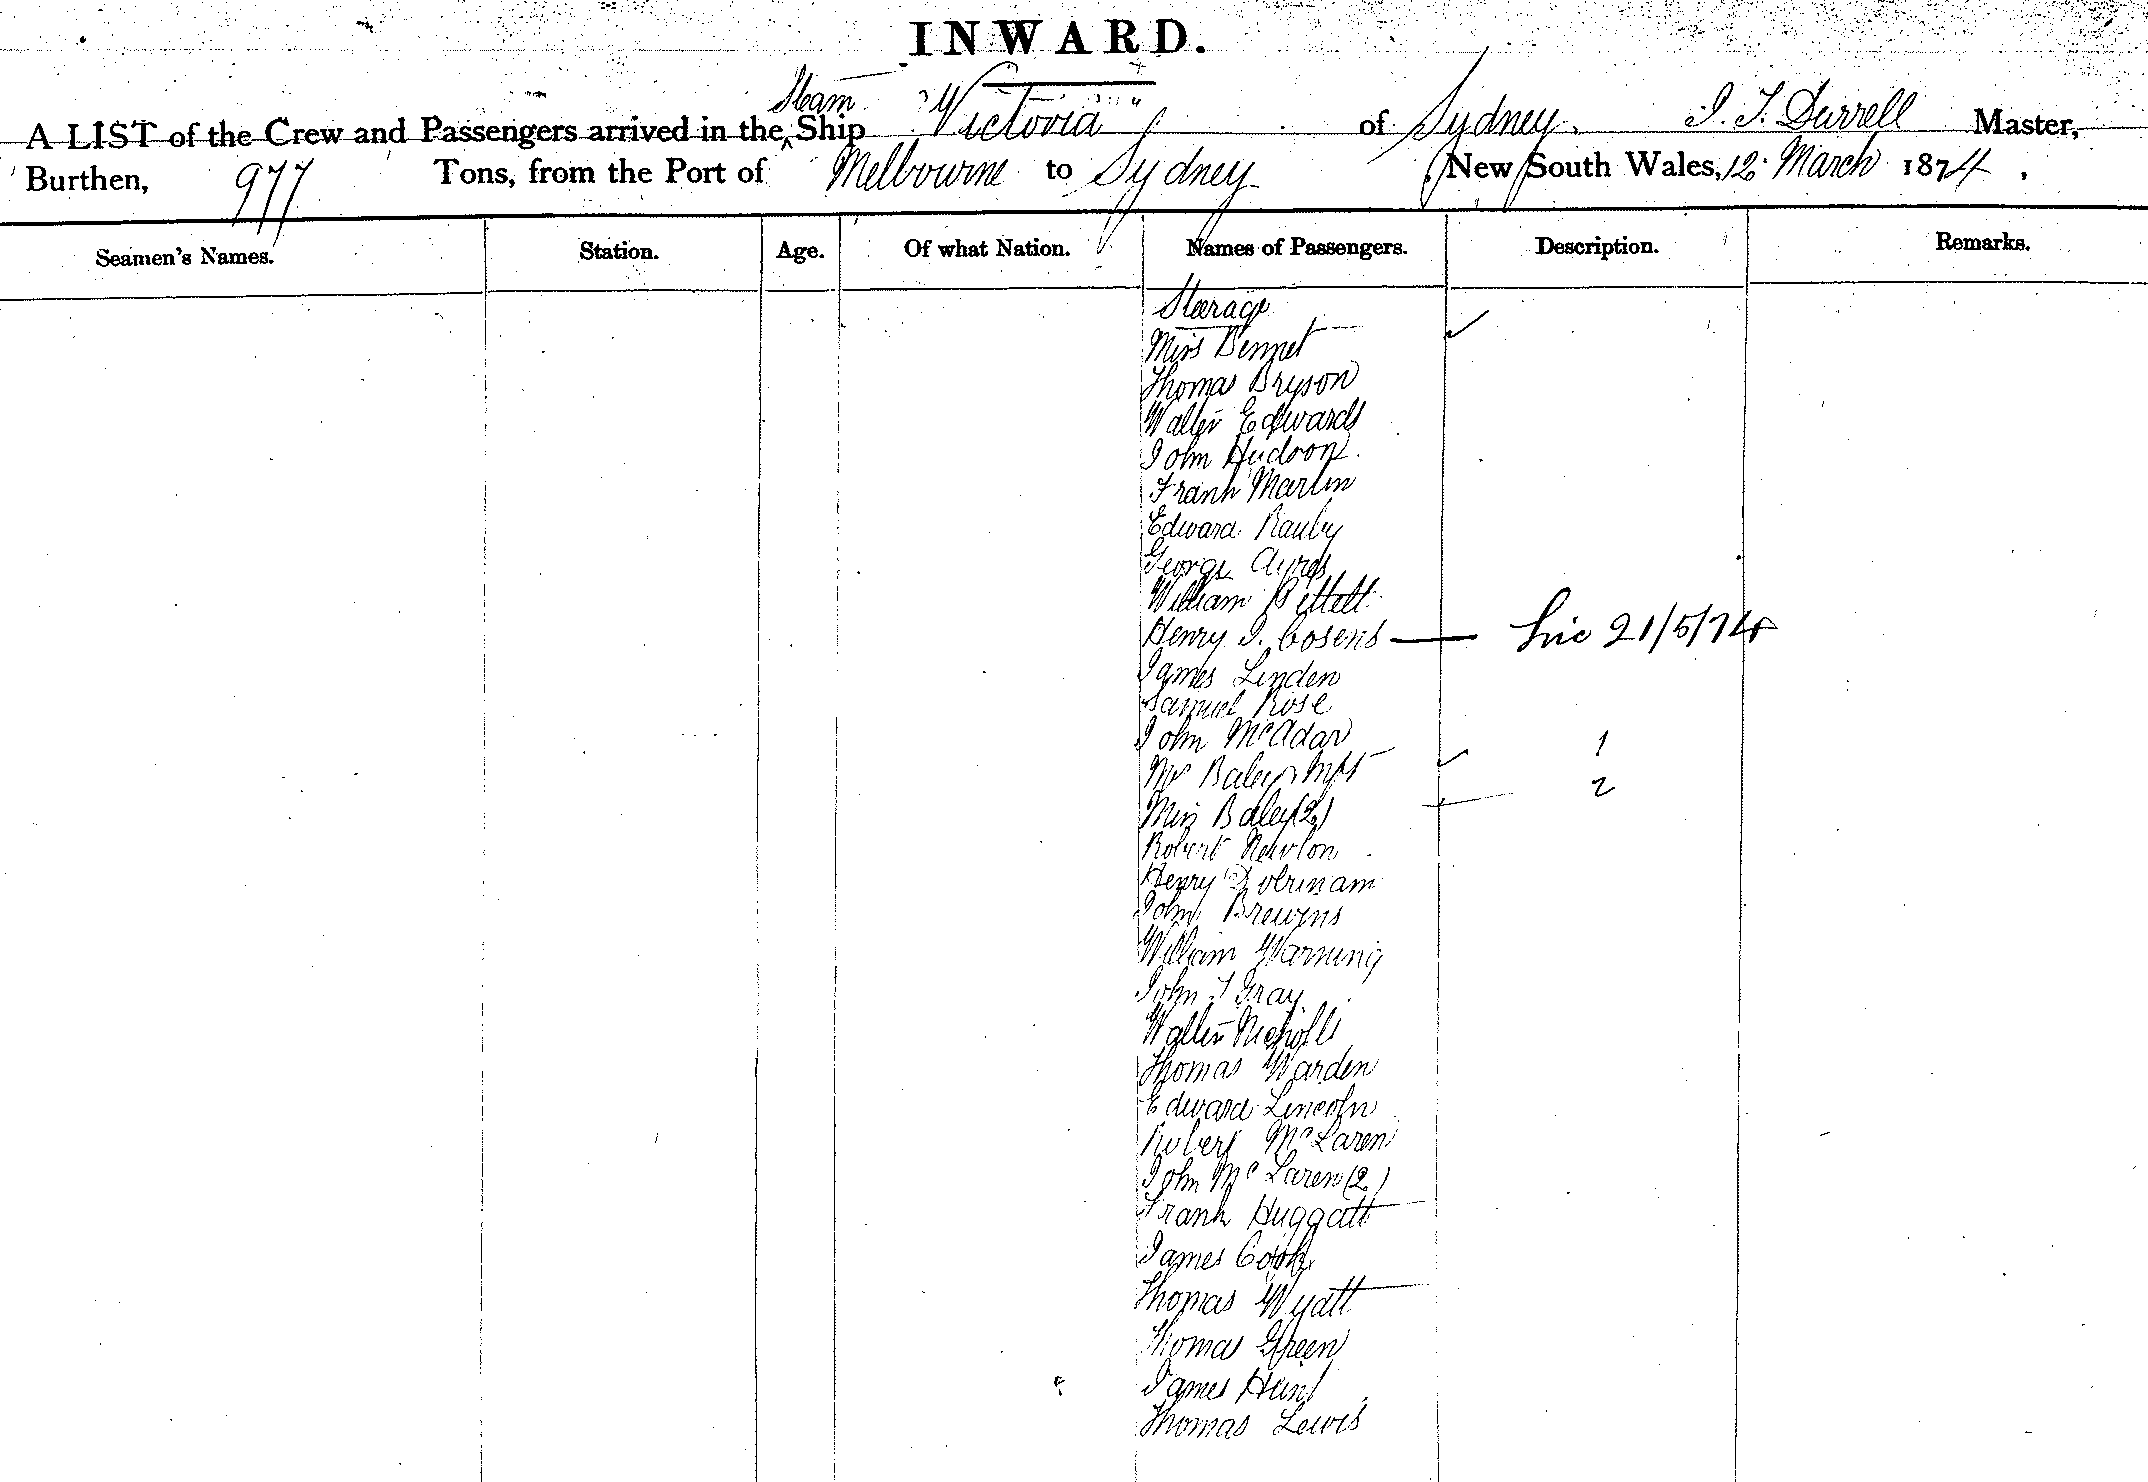 INWARD.
Steam
A LIST of the Crew and Passengers arrived in the ^ Ship "Victoria" of Sydney. I. T. Durrell Master,
Burthen, 977 Tons, from the Port of Melbourne to Sydney New South Wales, 12 March 1874.
Seamen's Names. Station. Age. Of what Nation. Names of Passengers. Description. Remarks.
Steerage
Miss Bennet ✓
Thomas Bryson
Walter Edwards
John Hudson
Frank Martin
Edward Rauby
George Ayres
William
Henry J. Cosens — Lic 21/5/74
James Linden
Samuel Rose
John McAdar
Mr Baley Inft ✓ 1
Miss Baley (2) 2
Robert Newton
Henry
John Brewens
William Warning
John T Gray
Walter Nicholls
Thomas Warden
Edward Lincoln
Robert McLaren
John McLaren (2)
Frank Huggatt
James Cook
Thomas Wyatt
Thomas Green
James Hunt
Thomas Lewis